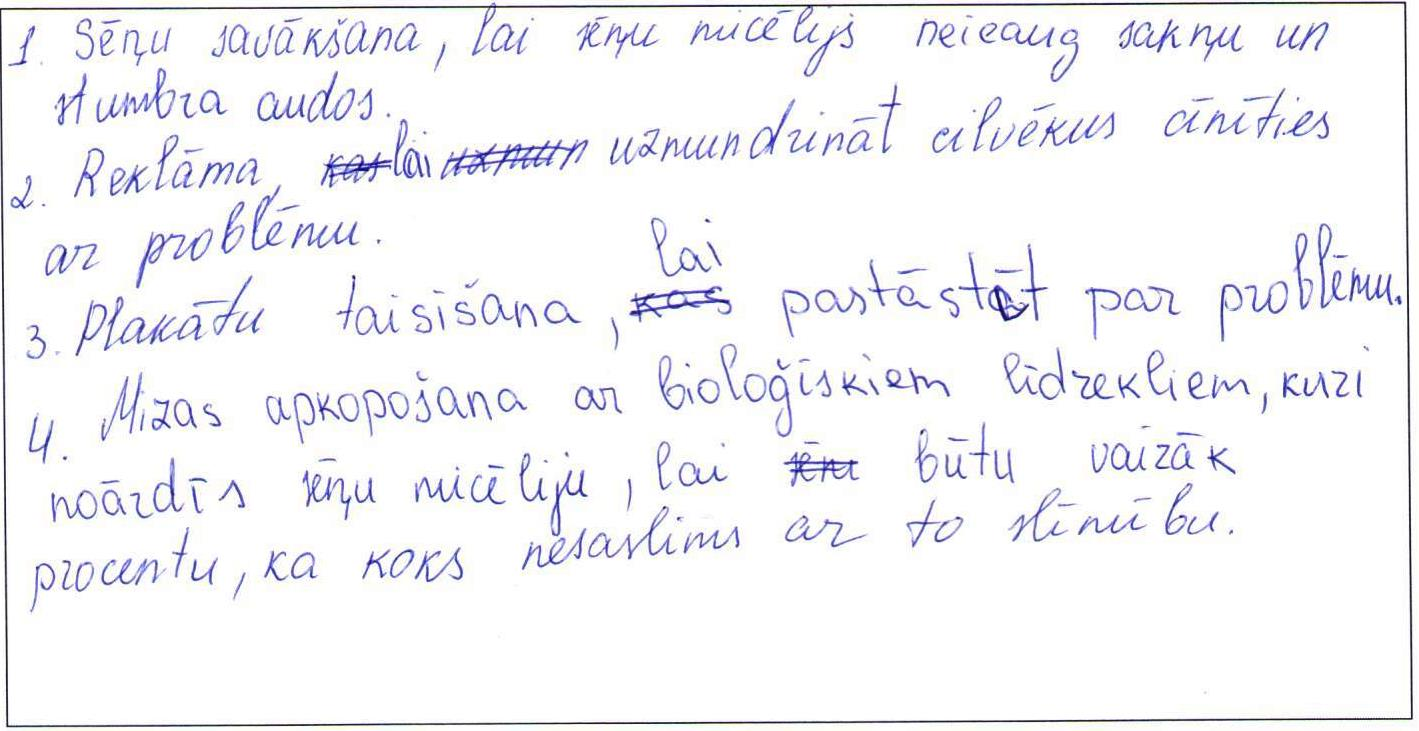 1. Sēņu savākšana, lai sēņu micēlijs neieaug sakņu un
stumbra audos.
2. Reklāma, kas lai uzmun uzmundrināt cilvēkus cīnīties
ar problēmu.
3. Plakātu taisīšana, kas lai pastāstāt par problēmu.
4. Mizas apkopošana ar bioloģiskiem līdzekliem, kuri
noārdīs sēņu micēliju, lai sēņ būtu vairāk
procentu, ka koks nesaslims ar to slimību.